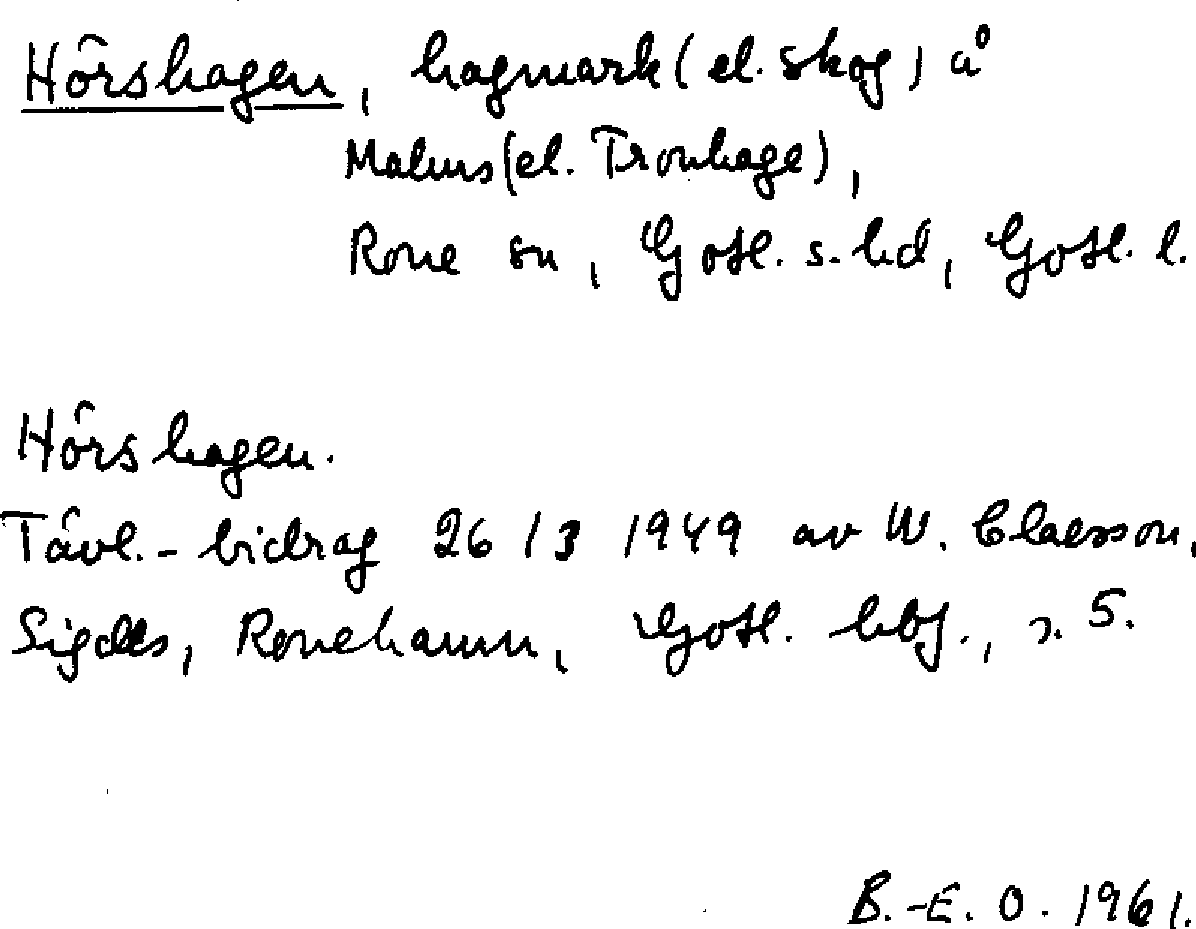 Hôrshagen, hagmark (el. skog) å
Malms (el. Tronhage),
Rone sn, Gotl. s. hd, Gotl. l.
Hôrshagen.
Tävl.-bidrag 26/3 1949 av W. Claesson,
Sigdes, Ronehamn, Gotl. hbf., s. 5.
B.-E. O. 1961.